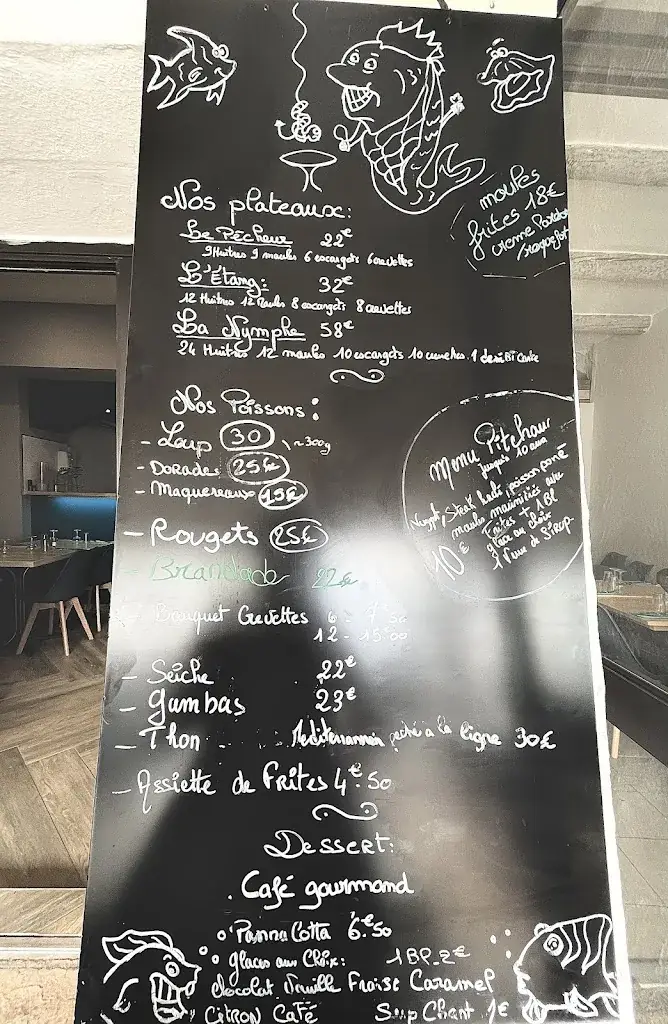 Nos plateaux:
Le Pêcheur 22€
9 Huitres 9 moules 6 escargots 6 crevettes
L'Étang: 32€
12 Huitres 12 Moules 8 escargots 8 crevettes
La Nymphe 58€
24 Huitres 12 moules 10 escargots 10 crevettes 1 demi
moules
frites 18€
creme
Roquefort
Nos Poissons:
- Loup 30 ~300g
- Dorades 25€
- Maquereaux 19€
- Rougets 25€
- Brandade 22€
Menu Pitchoun
jusqu'à 10 ans
Nugget, Steak haché, poisson pané
moules marinières avec
Frites + 1 Bl
glace au choix
1 Verre de Sirop
10€
- Bouquet Crevettes 6 - 7.50
12 - 15.00
- Seiche 22€
- Gambas 23€
- Thon Mediterranéen peché a la ligne 30€
- Assiette de Frites 4€.50
Dessert:
. Café gourmand
Panna Cotta 6€.50
glaces au Choix: 1 BP_2€
chocolat Vanille Fraise Caramel
Citron Café Sup Chant 1€